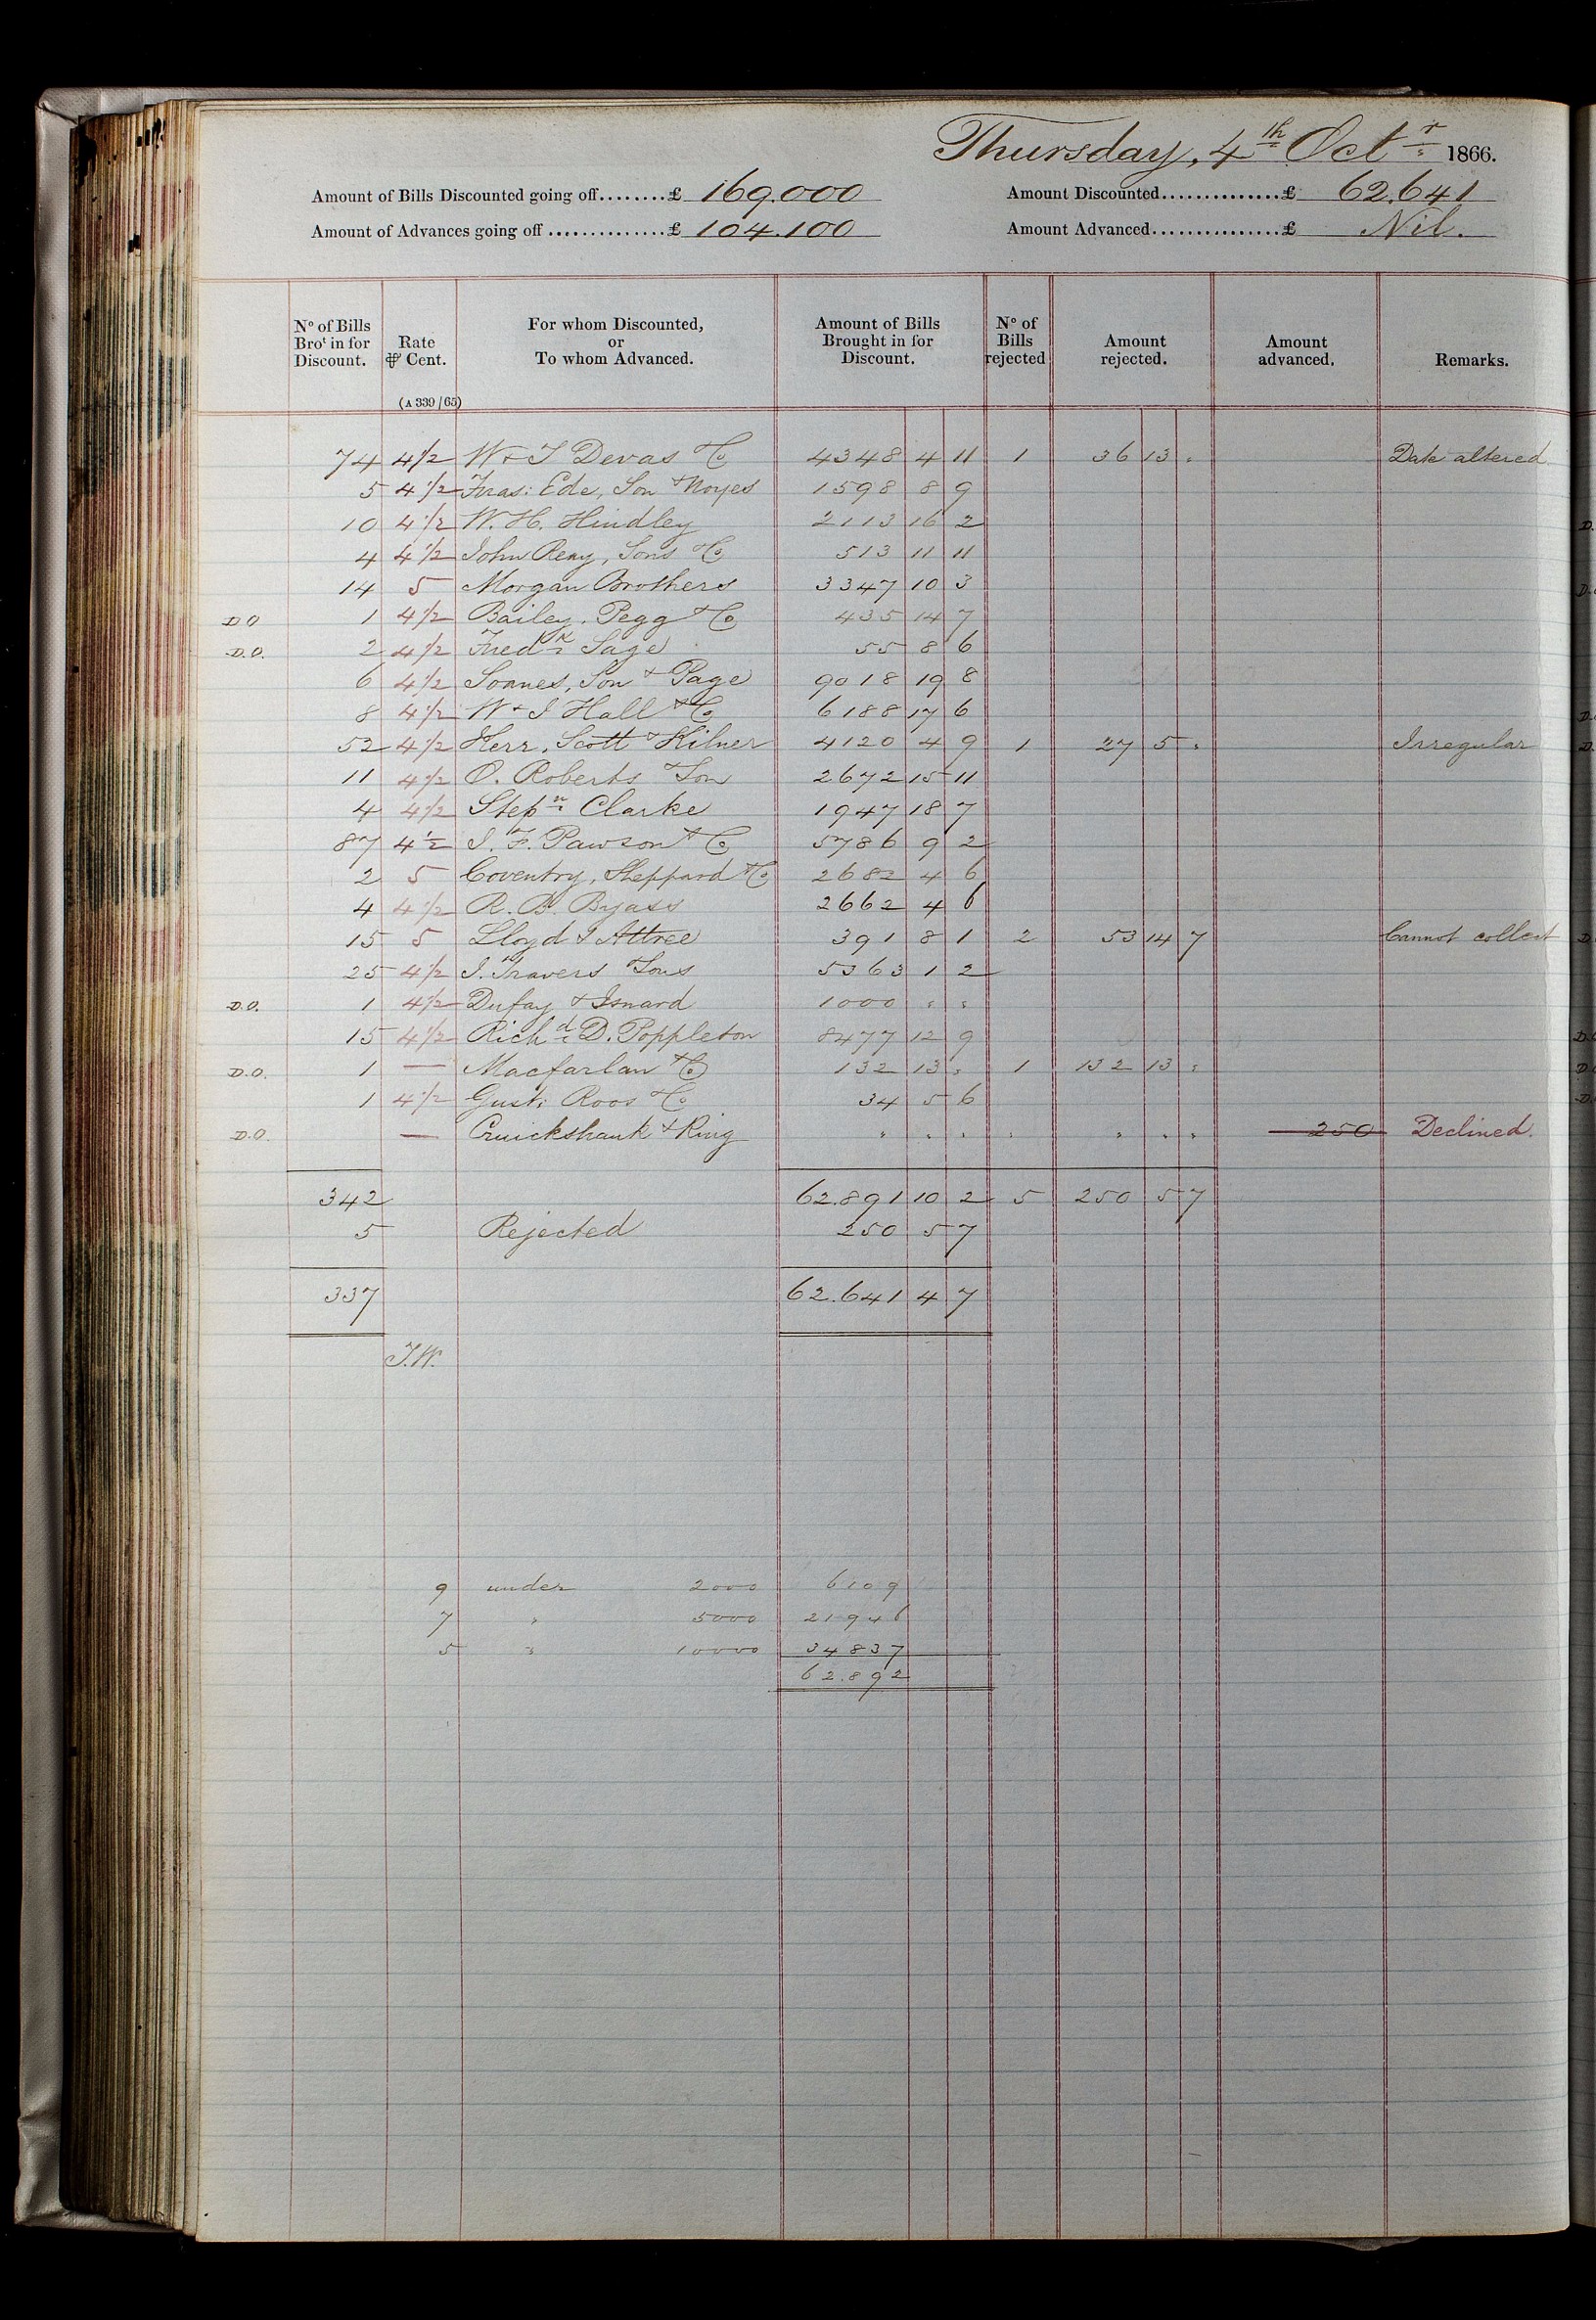 Thursday, 4th Octr 1866.
Amount of Bills Discounted going off........£ 169.000 Amount Discounted...............£ 62.641
Amount of Advances going off..............£ 104.100 Amount Advanced...............£ Nil.
No of Bills Brot in for Discount. Rate ⅌ Cent. (A 339/65) For whom Discounted, or To whom Advanced. Amount of Bills Brought in for Discount. No of Bills rejected Amount rejected. Amount advanced. Remarks.
74 4½ W & T Devas & Co 4348 4 11 1 36 13 " Date altered
5 4½ Fras: Ede, Son & Noyes 1598 8 9
10 4½ W. H. Hindley 2113 16 2
4 4½ John Reay, Sons & Co 513 11 11
14 5 Morgan Brothers 3347 10 3
D O 1 4½ Bailey, Pegg & Co 435 14 7
D.O. 2 4½ Fredk Sage 55 8 6
6 4½ Soames, Son & Page 9018 19 8
8 4½ W & I Hall & Co 6188 17 6
52 4½ Kerr, Scott & Kilner 4120 4 9 1 27 5 " Irregular
11 4½ O. Roberts & Son 2672 15 11
4 4½ Stepn Clarke 1947 18 7
87 4½ J. F. Pawson & Co 5786 9 2
2 5 Coventry, Sheppard & Co 2682 4 6
4 4½ R. B. Byass 2662 4 6
15 5 Lloyd & Attree 391 8 1 2 53 14 7 Cannot collect
25 4½ J. Travers & Sons 5363 1 2
D.O. 1 4½ Dufay & Isnard 1000 " "
15 4½ Richd D. Poppleton 8477 12 9
D.O. 1 — Macfarlan & Co 132 13 " 1 132 13 "
1 4½ Gust: Roos & Co 34 5 6
D.O. — Cruickshank & Ring " " " " " " " 250 Declined.
342 62.891 10 2 5 250 5 7
5 Rejected 250 5 7
337 62.641 4 7
J.W.
9 under 2000 6109
7 " 5000 21946
5 " 10000 34837
62.892